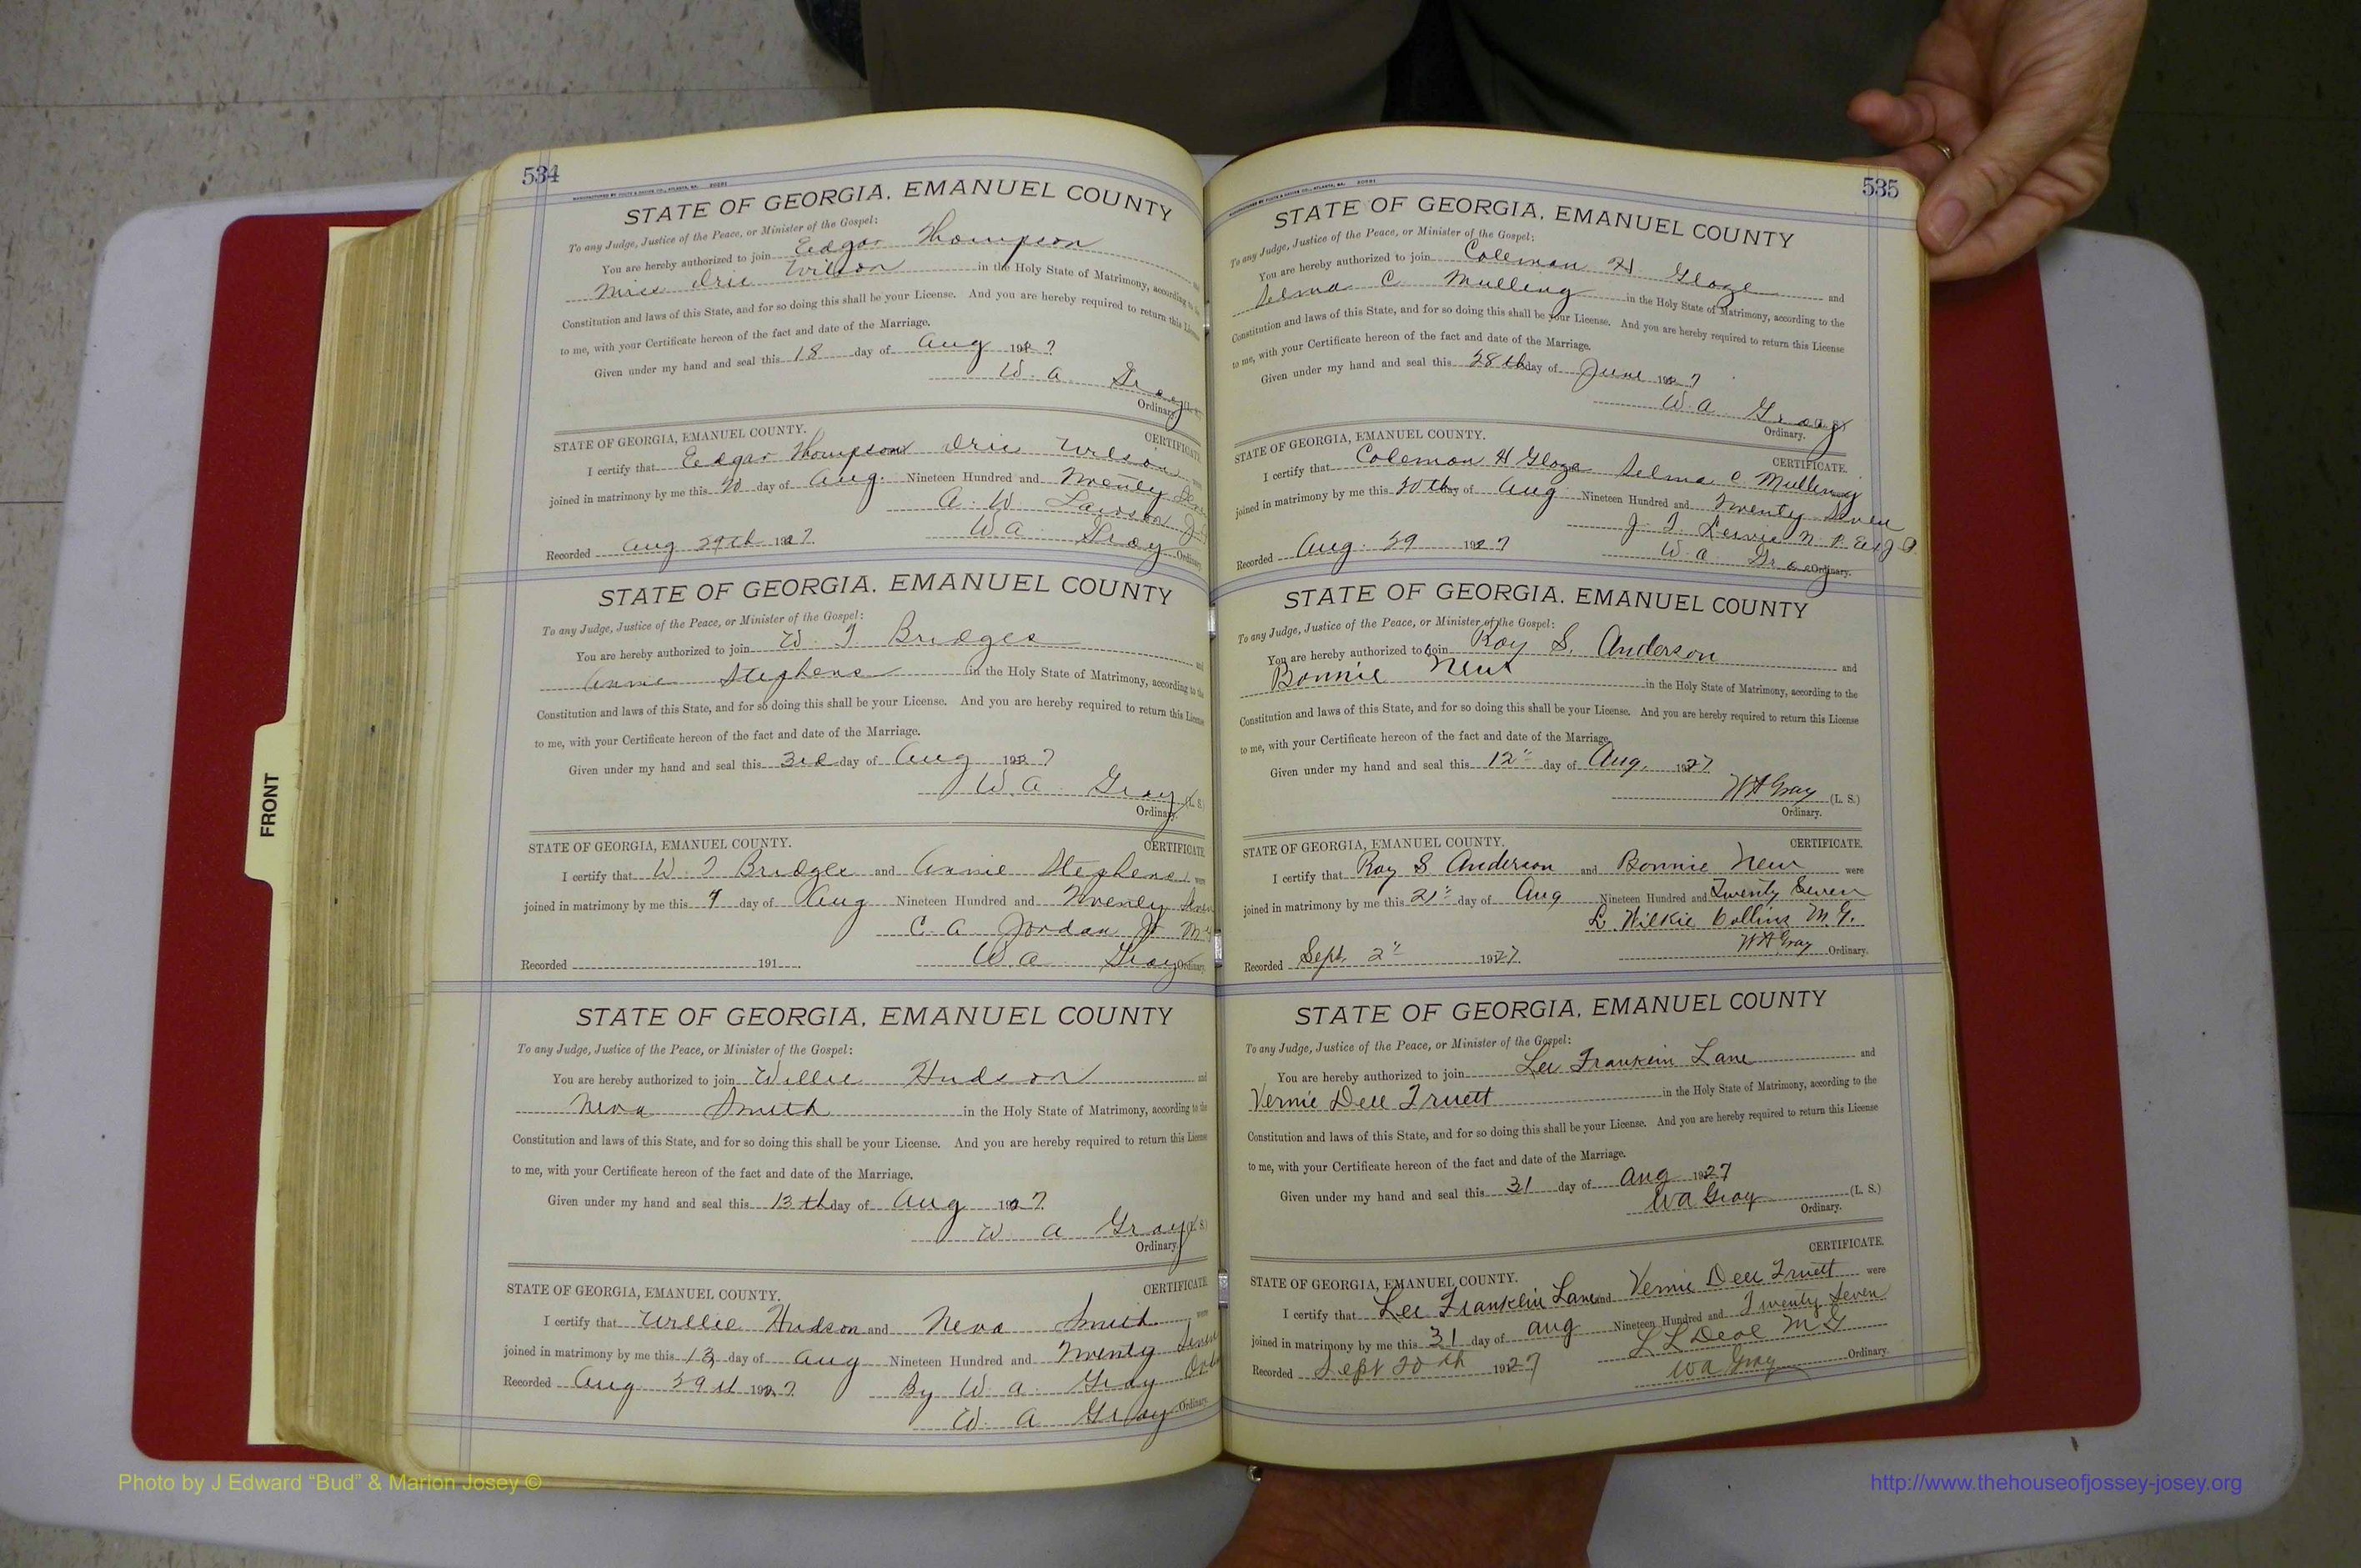 534
STATE OF GEORGIA, EMANUEL COUNTY
To any Judge, Justice of the Peace, or Minister of the Gospel:
You are hereby authorized to join Edgar Thompson and
Miss Orie Wilson in the Holy State of Matrimony, according to the
Constitution and laws of this State, and for so doing this shall be your License. And you are hereby required to return this License
to me, with your Certificate hereon of the fact and date of the Marriage.
Given under my hand and seal this 18 day of Aug 1927
W. A. Gray
Ordinary.
STATE OF GEORGIA, EMANUEL COUNTY. CERTIFICATE
I certify that Edgar Thompson Orie Wilson were
joined in matrimony by me this 20 day of Aug. Nineteen Hundred and Twenty
A. W. Lawson
Recorded Aug 29th 1927. W A Gray Ordinary.
STATE OF GEORGIA, EMANUEL COUNTY
To any Judge, Justice of the Peace, or Minister of the Gospel:
You are hereby authorized to join W. T. Bridges and
Annie Stephens in the Holy State of Matrimony, according to the
Constitution and laws of this State, and for so doing this shall be your License. And you are hereby required to return this License
to me, with your Certificate hereon of the fact and date of the Marriage.
Given under my hand and seal this 3rd day of Aug 1927
W. A Gray (L. S.)
Ordinary.
STATE OF GEORGIA, EMANUEL COUNTY. CERTIFICATE
I certify that W. T Bridges and Annie Stephens were
joined in matrimony by me this 7 day of Aug Nineteen Hundred and Twenty Seven
C. A. Jordan Jr M G
Recorded 191 W. a Gray Ordinary.
STATE OF GEORGIA, EMANUEL COUNTY
To any Judge, Justice of the Peace, or Minister of the Gospel:
You are hereby authorized to join Willie Hudson and
Neva Smith in the Holy State of Matrimony, according to the
Constitution and laws of this State, and for so doing this shall be your License. And you are hereby required to return this License
to me, with your Certificate hereon of the fact and date of the Marriage.
Given under my hand and seal this 13th day of Aug 1927.
W A Gray (L. S.)
Ordinary.
STATE OF GEORGIA, EMANUEL COUNTY. CERTIFICATE
I certify that Willie Hudson and Neva Smith were
joined in matrimony by me this 13 day of Aug Nineteen Hundred and Twenty Seven
Recorded Aug 29th 1927 By W a. Gray
W. A Gray Ordinary.
535
STATE OF GEORGIA, EMANUEL COUNTY
To any Judge, Justice of the Peace, or Minister of the Gospel:
You are hereby authorized to join Coleman H. Gloge and
Selma C. Mulling in the Holy State of Matrimony, according to the
Constitution and laws of this State, and for so doing this shall be your License. And you are hereby required to return this License
to me, with your Certificate hereon of the fact and date of the Marriage.
Given under my hand and seal this 28th day of June 1927
W. A Gray
Ordinary.
STATE OF GEORGIA, EMANUEL COUNTY. CERTIFICATE.
I certify that Coleman H Gloge Selma C Mulling
joined in matrimony by me this 20th day of Aug Nineteen Hundred and Twenty Seven
J. T. Lewis N. P. Ex J P
Recorded Aug. 29 1927 W. a. Gray Ordinary.
STATE OF GEORGIA, EMANUEL COUNTY
To any Judge, Justice of the Peace, or Minister of the Gospel:
You are hereby authorized to join Roy S. Anderson and
Bonnie New in the Holy State of Matrimony, according to the
Constitution and laws of this State, and for so doing this shall be your License. And you are hereby required to return this License
to me, with your Certificate hereon of the fact and date of the Marriage.
Given under my hand and seal this 12" day of Aug. 1927.
W A Gray (L. S.)
Ordinary.
STATE OF GEORGIA, EMANUEL COUNTY. CERTIFICATE.
I certify that Roy S Anderson and Bonnie New were
joined in matrimony by me this 21" day of Aug Nineteen Hundred and Twenty Seven
L. Wilkie Collins M. G.
Recorded Sept. 2" 1927. W A Gray Ordinary.
STATE OF GEORGIA, EMANUEL COUNTY
To any Judge, Justice of the Peace, or Minister of the Gospel:
You are hereby authorized to join Lee Franklin Lane and
Vernie Dell Truett in the Holy State of Matrimony, according to the
Constitution and laws of this State, and for so doing this shall be your License. And you are hereby required to return this License
to me, with your Certificate hereon of the fact and date of the Marriage.
Given under my hand and seal this 31 day of Aug 1927
W a Gray (L. S.)
Ordinary.
STATE OF GEORGIA, EMANUEL COUNTY. CERTIFICATE.
I certify that Lee Franklin Lane and Vernie Dell Truett were
joined in matrimony by me this 31 day of Aug Nineteen Hundred and Twenty Seven
L L Deal M G
Recorded Sept 20th 1927 W a Gray Ordinary.
FRONT
Photo by J Edward “Bud” & Marion Josey ©
http://www.thehouseofjossey-josey.org